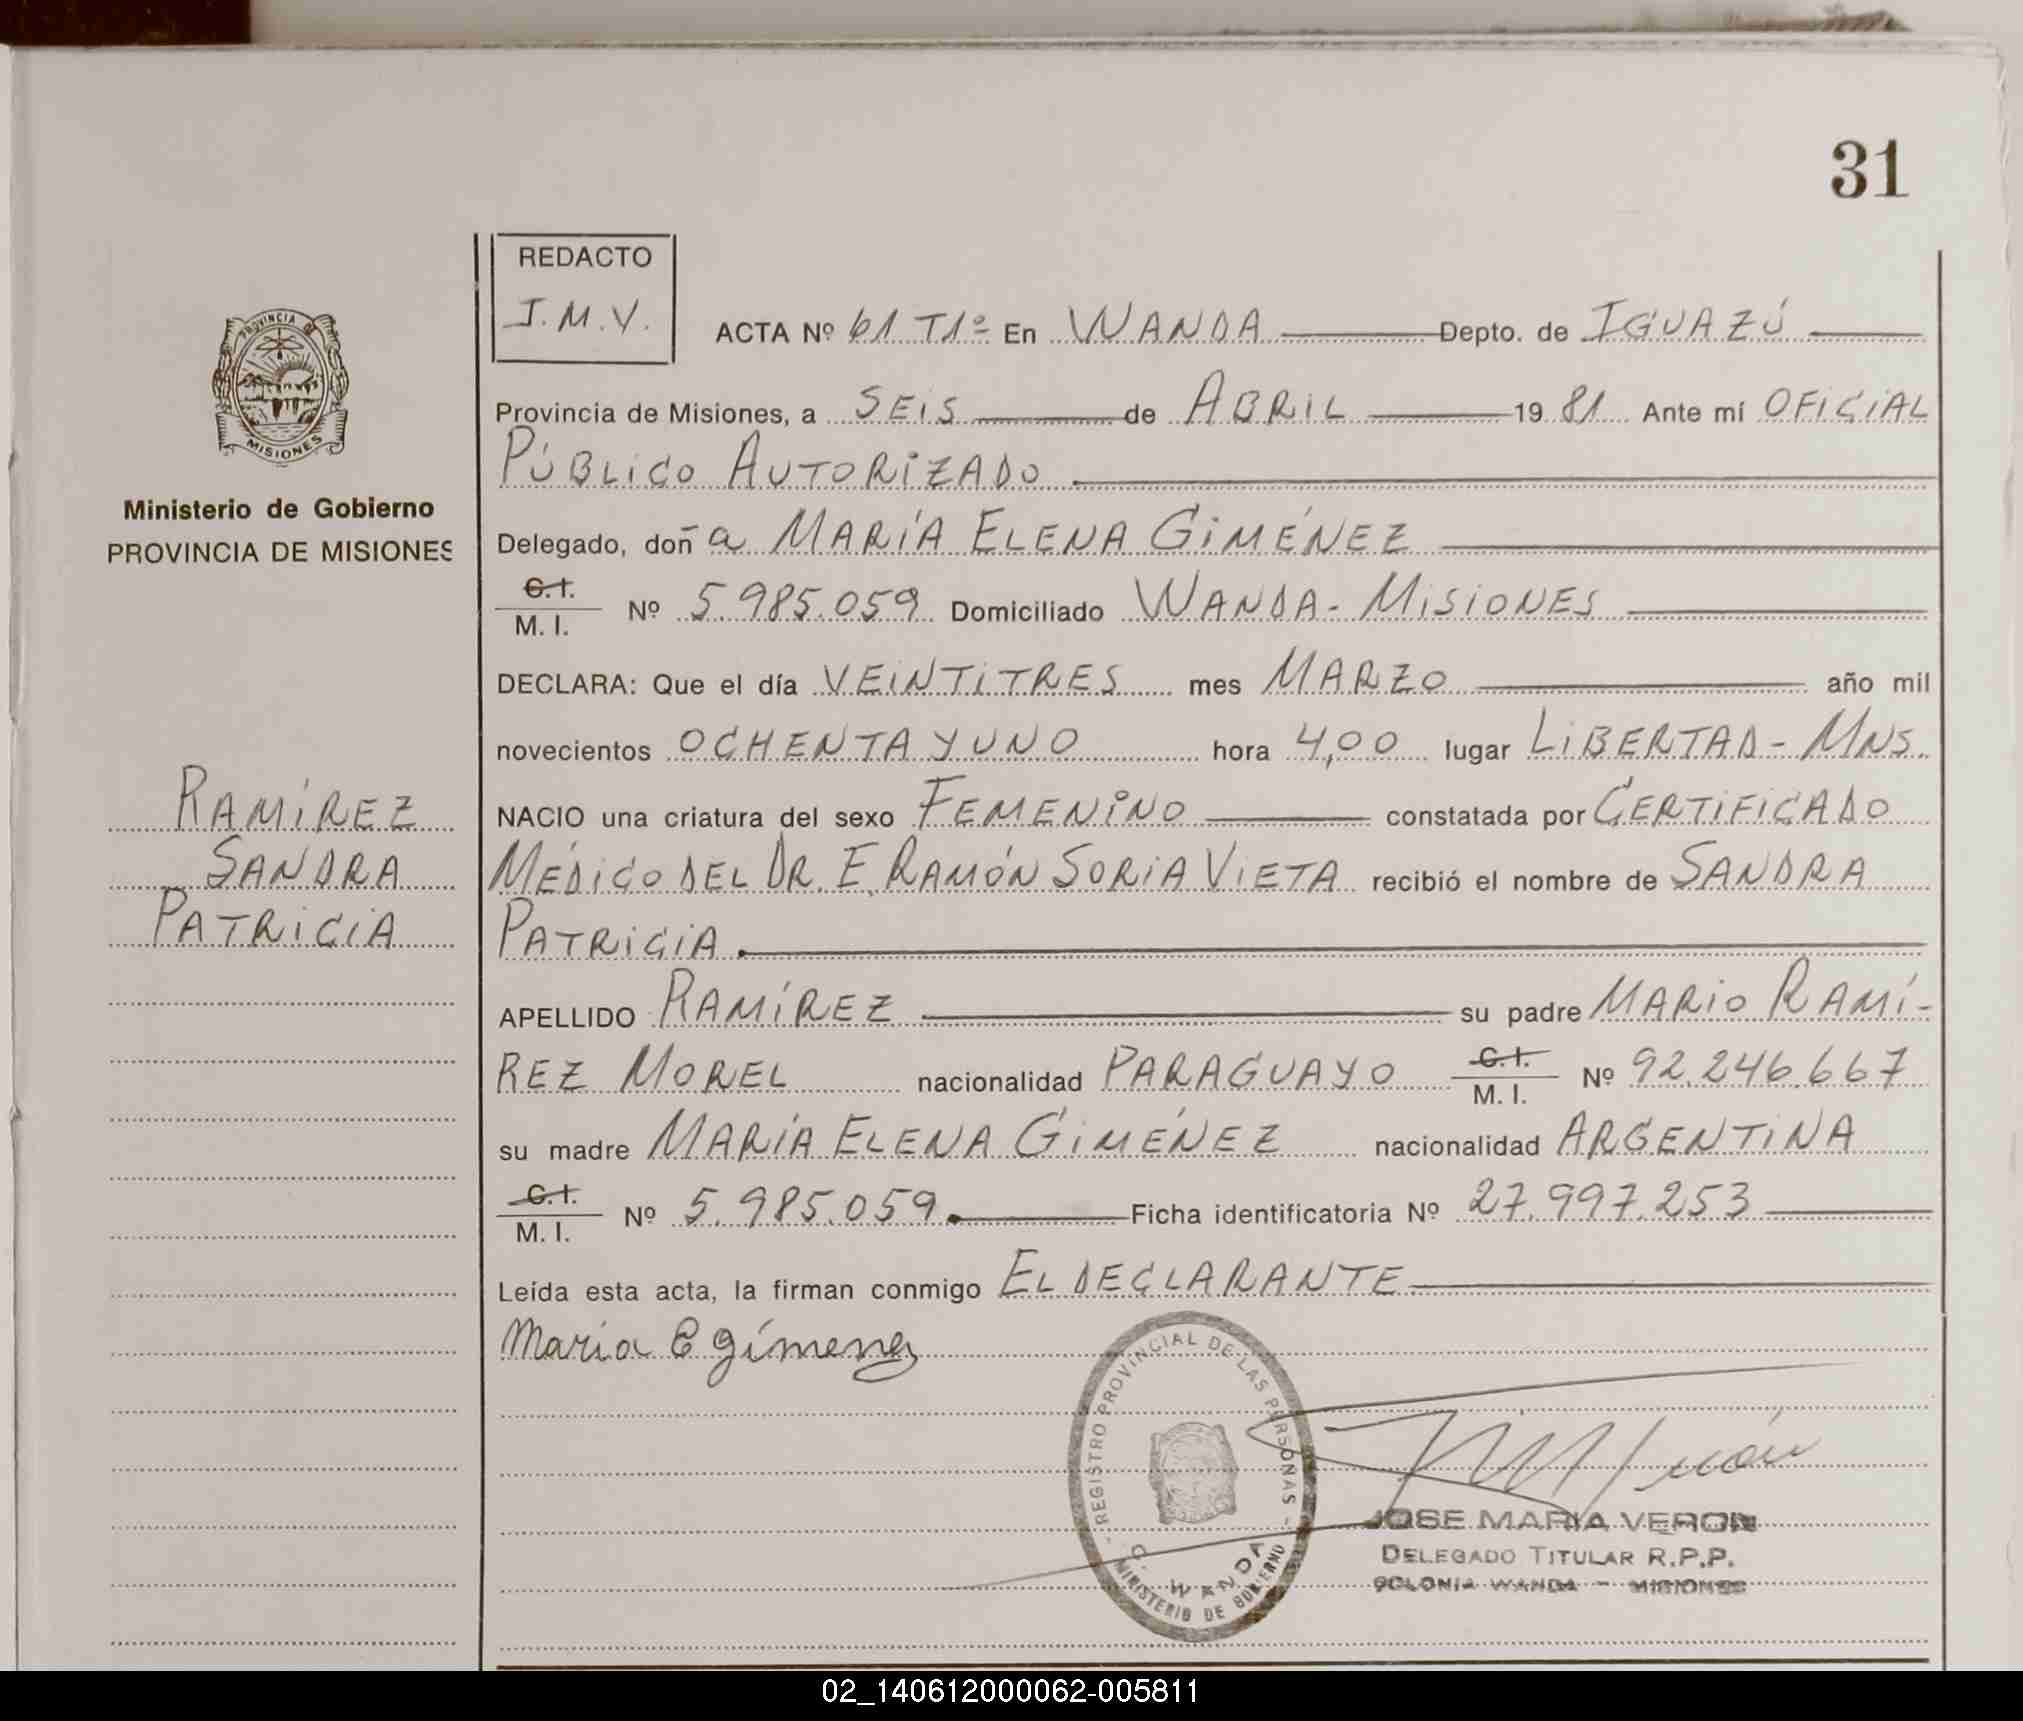 31
REDACTO
J.M.V.
ACTA Nº 61 T1º En WANDA Depto. de IGUAZÚ
Provincia de Misiones, a SEIS de ABRIL 19 81 Ante mí OFICIAL
PÚBLICO AUTORIZADO
Delegado, doña MARÍA ELENA GIMÉNEZ
C.I.
M. I. Nº 5.985.059 Domiciliado WANDA - MISIONES
DECLARA: Que el día VEINTITRES mes MARZO año mil
novecientos OCHENTA Y UNO hora 4,00 lugar LIBERTAD - MNS.
NACIO una criatura del sexo FEMENINO constatada por CERTIFICADO
MÉDICO DEL DR. E. RAMÓN SORIA VIETA recibió el nombre de SANDRA
PATRICIA.
APELLIDO RAMÍREZ su padre MARIO RAMÍ-
REZ MOREL nacionalidad PARAGUAYO C.I.
M. I. Nº 92.246.667
su madre MARÍA ELENA GIMÉNEZ nacionalidad ARGENTINA
C.I.
M. I. Nº 5.985.059. Ficha identificatoria Nº 27.997.253
Leída esta acta, la firman conmigo EL DECLARANTE
Maria E Gímenez
PROVINCIA DE
MISIONES
Ministerio de Gobierno
PROVINCIA DE MISIONES
RAMÍREZ
SANDRA
PATRICIA
- REGISTRO PROVINCIAL DE LAS PERSONAS -
C. WANDA
MINISTERIO DE GOBIERNO
JOSE MARIA VERON
DELEGADO TITULAR R.P.P.
COLONIA WANDA - MISIONES
02_140612000062-005811